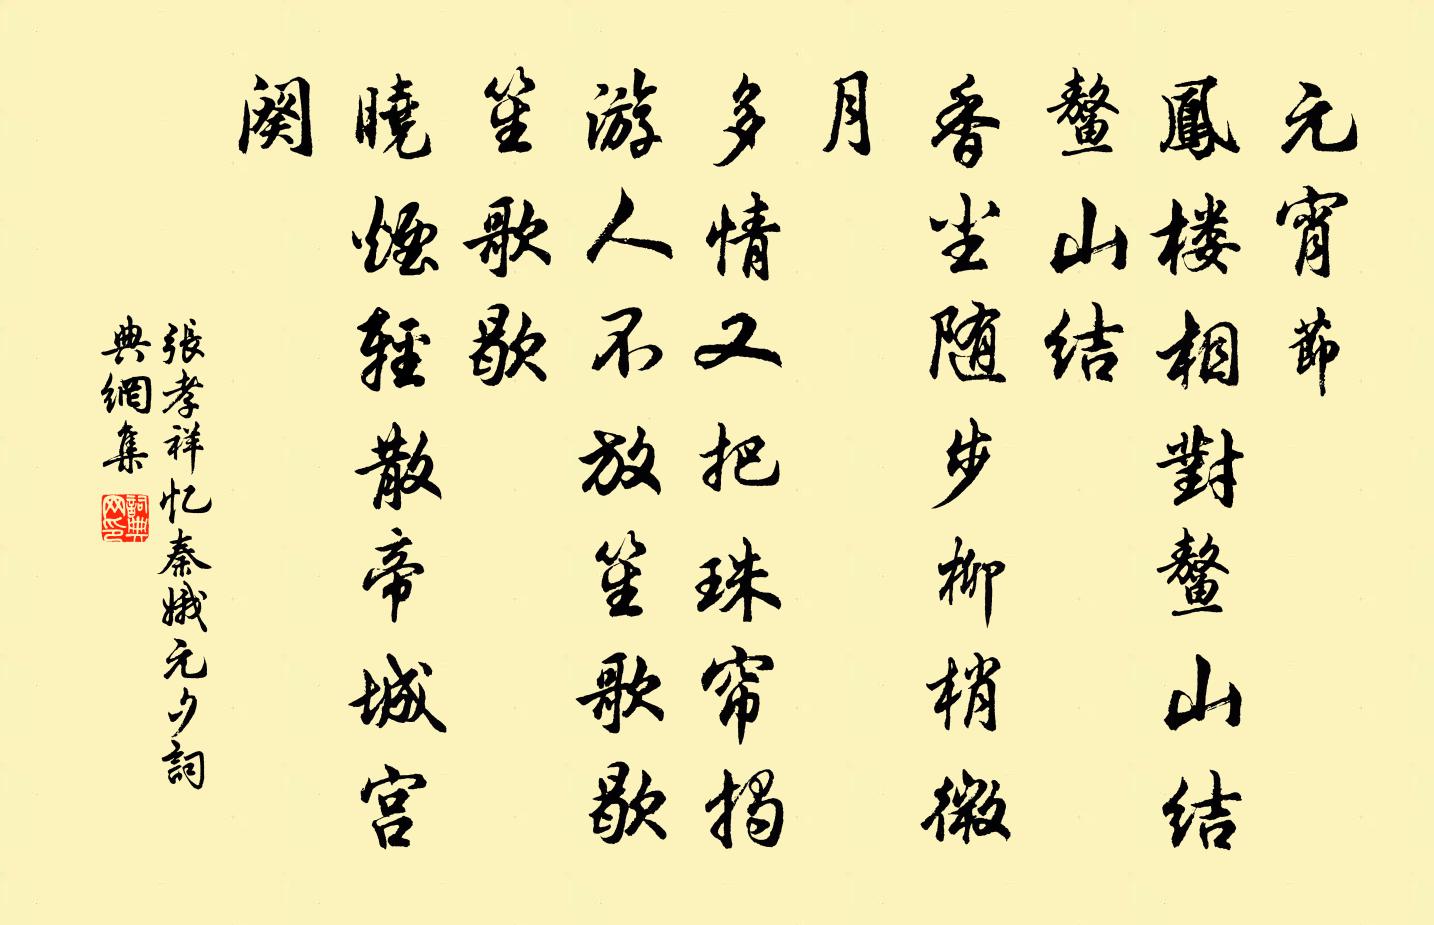 元宵節
鳳楼相對鳌山結
鳌山结
香尘随步柳梢微
月
多情又把珠帘揭
游人不放笙歌歇
笙歌歇
曉煙輕散帝城宫
阕
張孝祥忆秦娥元夕詞
典網集
詞典網印